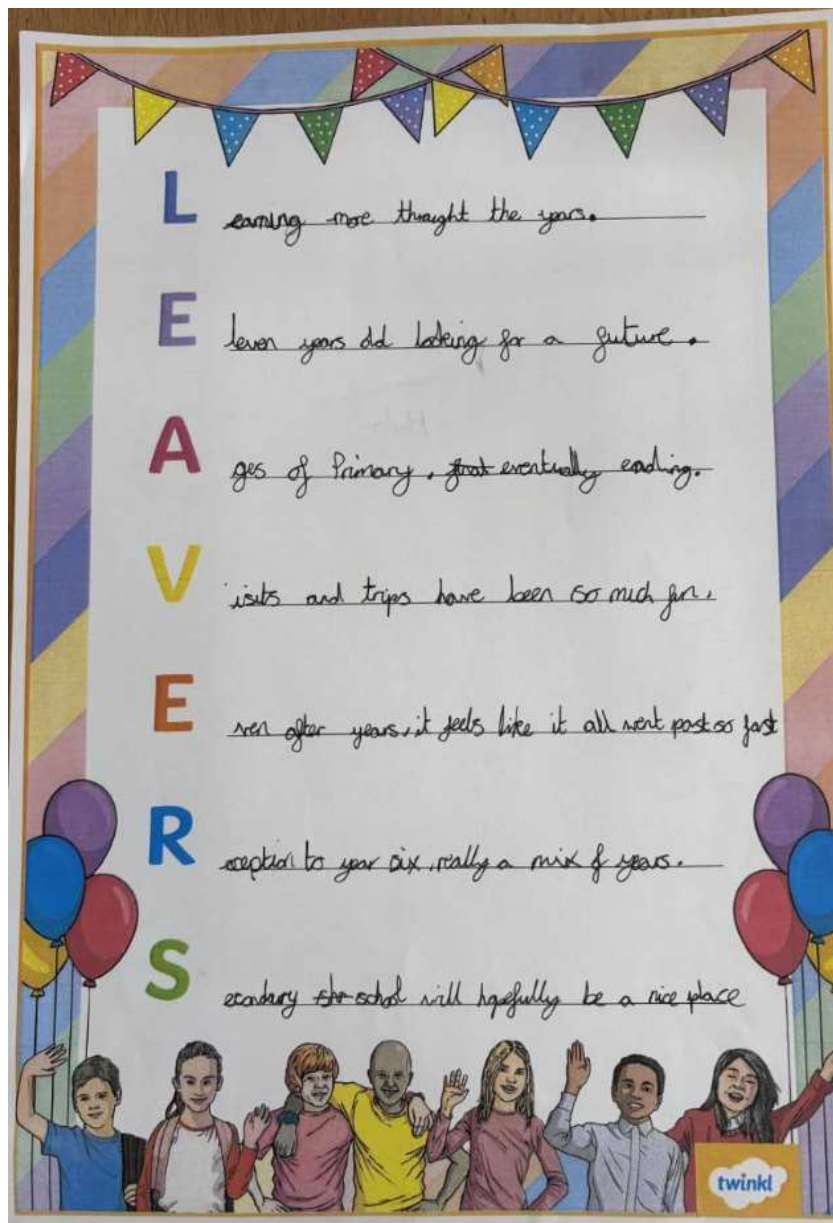 Learning more throught the years.
Eleven years old looking for a future.
Ages of Primary, that eventually ending.
Visits and trips have been so much fun,
Even after years, it feels like it all went past so fast
Reception to year six, really a mix of years.
Secondary sh school will hopefully be a nice place
twinkl